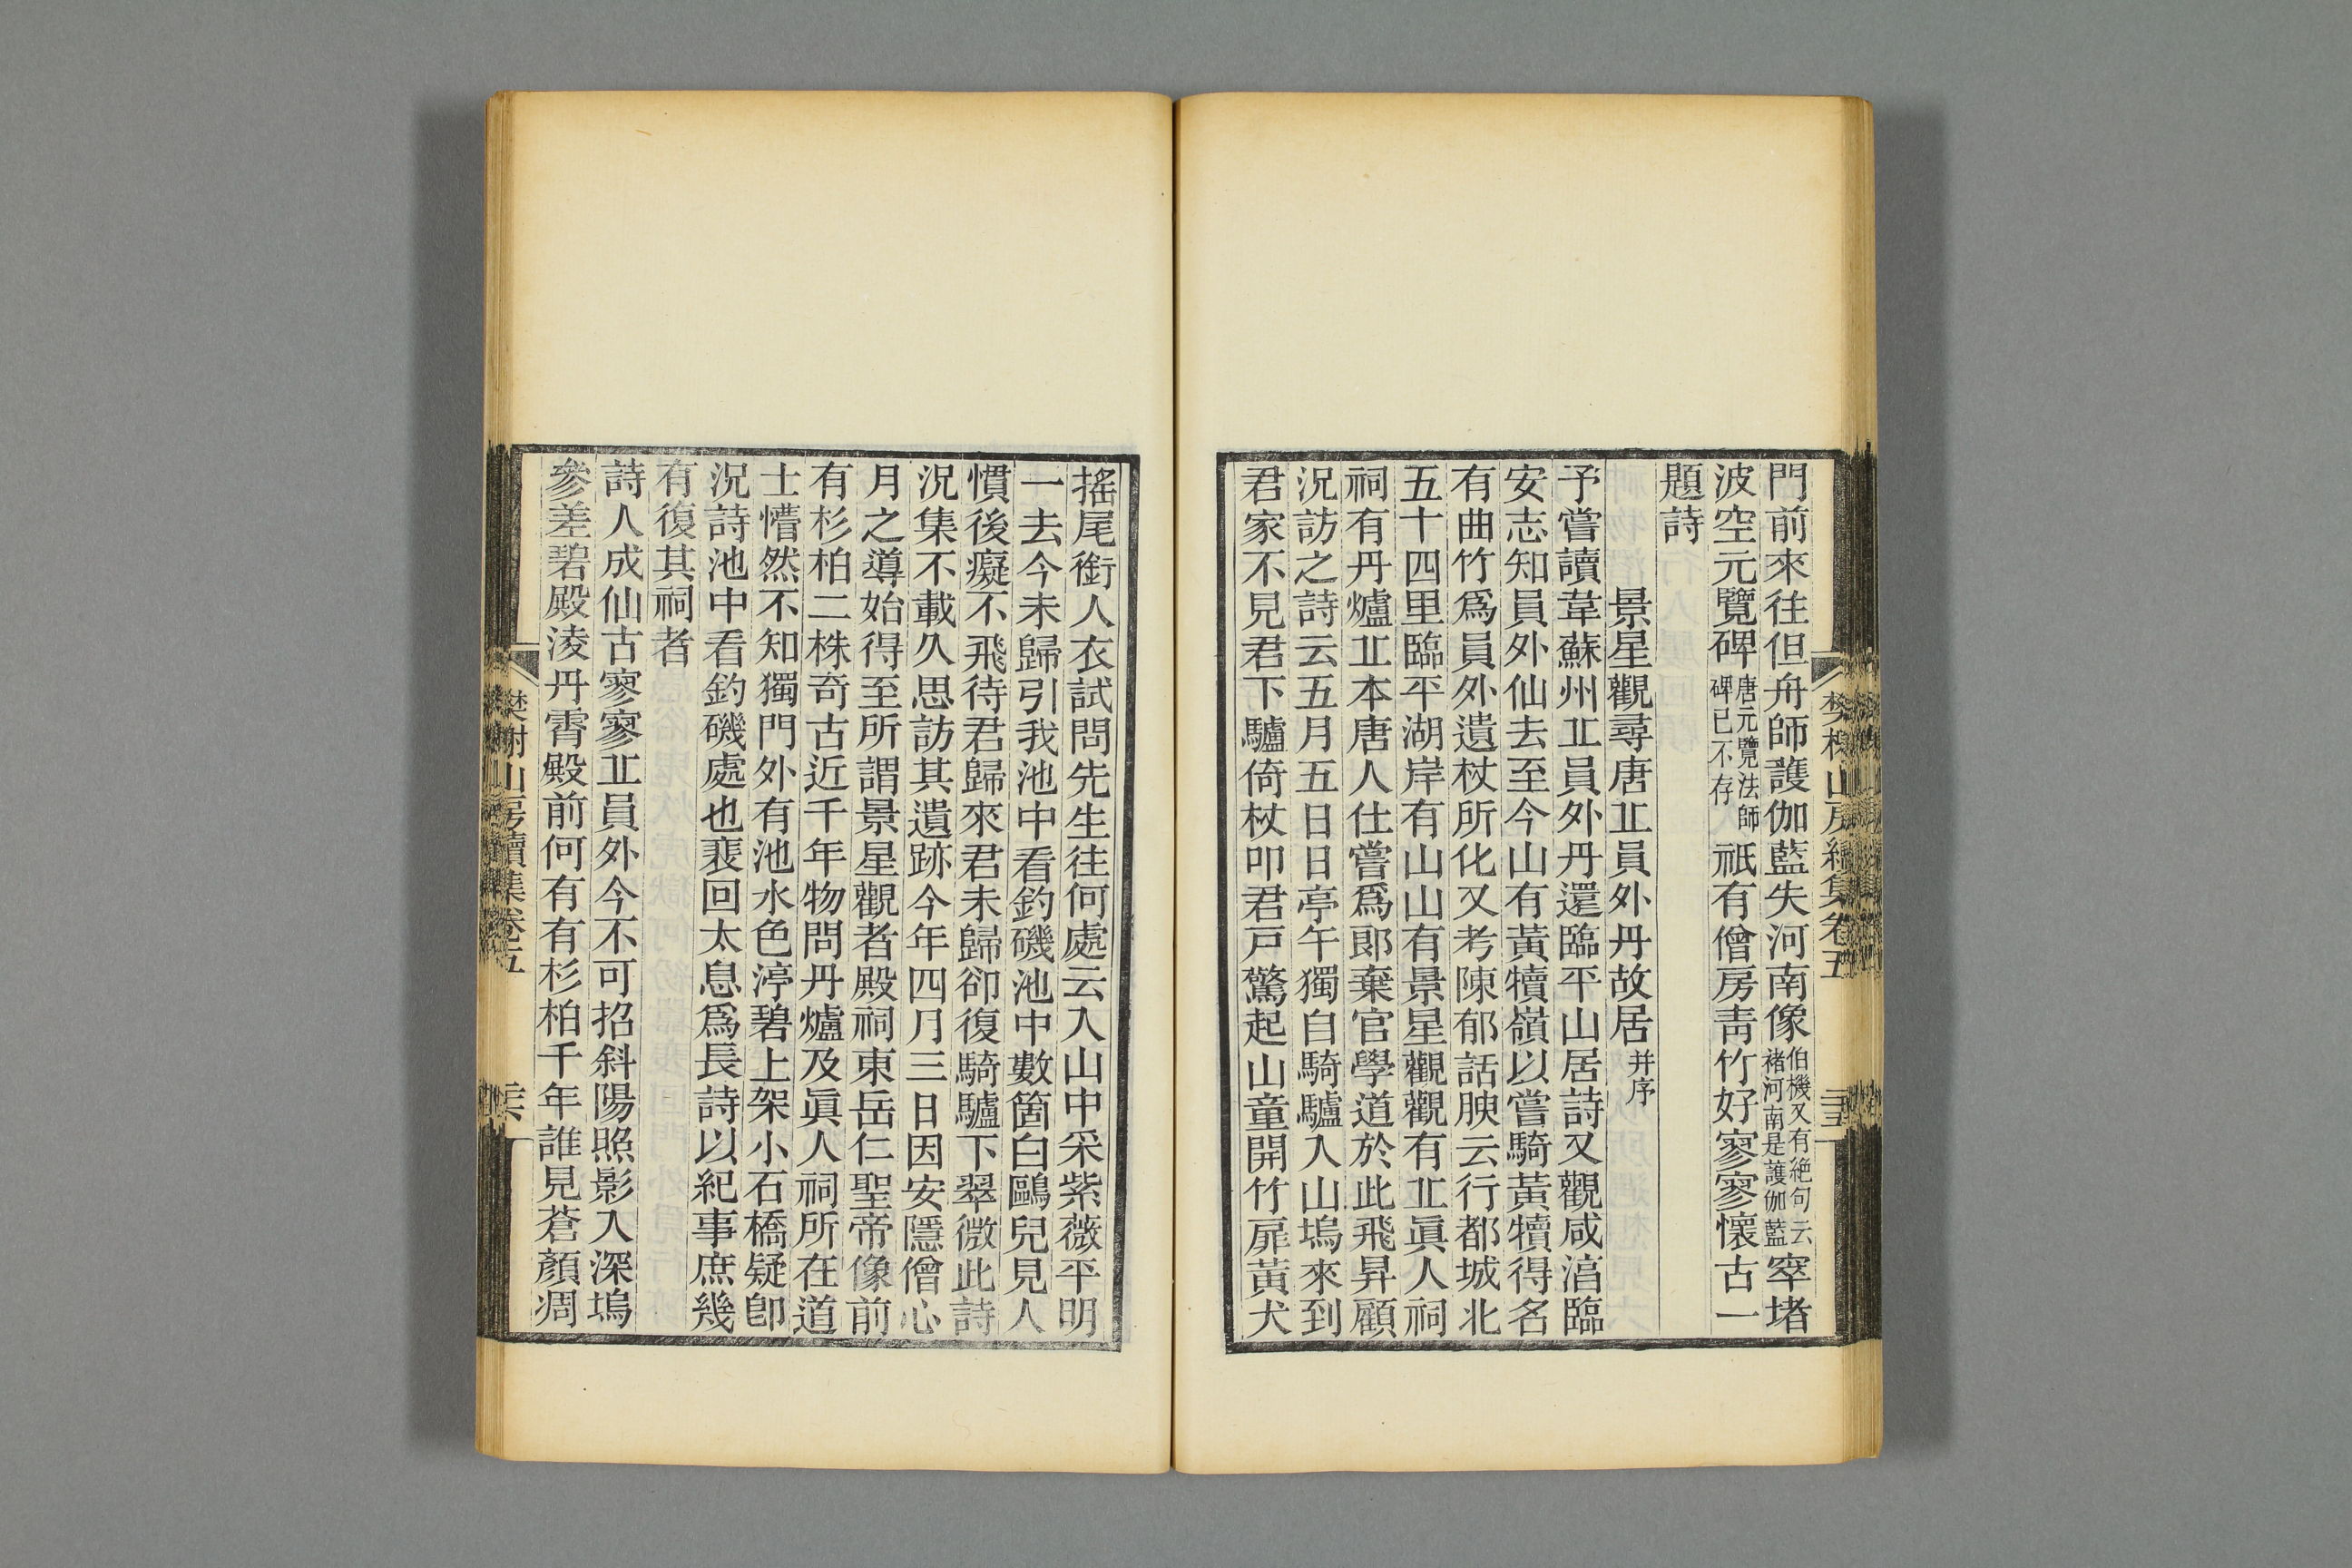 門前來往但舟師護伽藍失河南像伯機又有絕句云褚河南是護伽藍窣堵
波空元覽碑唐元覽法師碑已不存祇有僧房靑竹好寥寥懷古一
題詩
景星觀尋唐丠員外丹故居并序
予嘗讀韋蘇州丠員外丹還臨平山居詩又觀咸淳臨
安志知員外仙去至今山有黃犢嶺以嘗騎黃犢得名
有曲竹爲員外遺杖所化又考陳郁話腴云行都城北
五十四里臨平湖岸有山山有景星觀觀有丠眞人祠
祠有丹爐丠本唐人仕嘗爲郞棄官學道於此飛昇顧
況訪之詩云五月五日日亭午獨自騎驢入山塢來到
君家不見君下驢倚杖叩君戸驚起山童開竹扉黃犬
樊榭山房續集卷五
搖尾銜人衣試問先生往何處云入山中采紫薇平明
一去今未歸引我池中看釣磯池中數箇白鷗兒見人
慣後癡不飛待君歸來君未歸卻復騎驢下翠微此詩
況集不載久思訪其遺跡今年四月三日因安隱僧心
月之導始得至所謂景星觀者殿祠東岳仁聖帝像前
有杉柏二株奇古近千年物問丹爐及眞人祠所在道
士懵然不知獨門外有池水色渟碧上架小石橋疑卽
況詩池中看釣磯處也裴回太息爲長詩以紀事庶幾
有復其祠者
詩人成仙古寥寥丠員外今不可招斜陽照影入深塢
參差碧殿淩丹霄殿前何有有杉柏千年誰見蒼顏凋
樊榭山房續集卷五